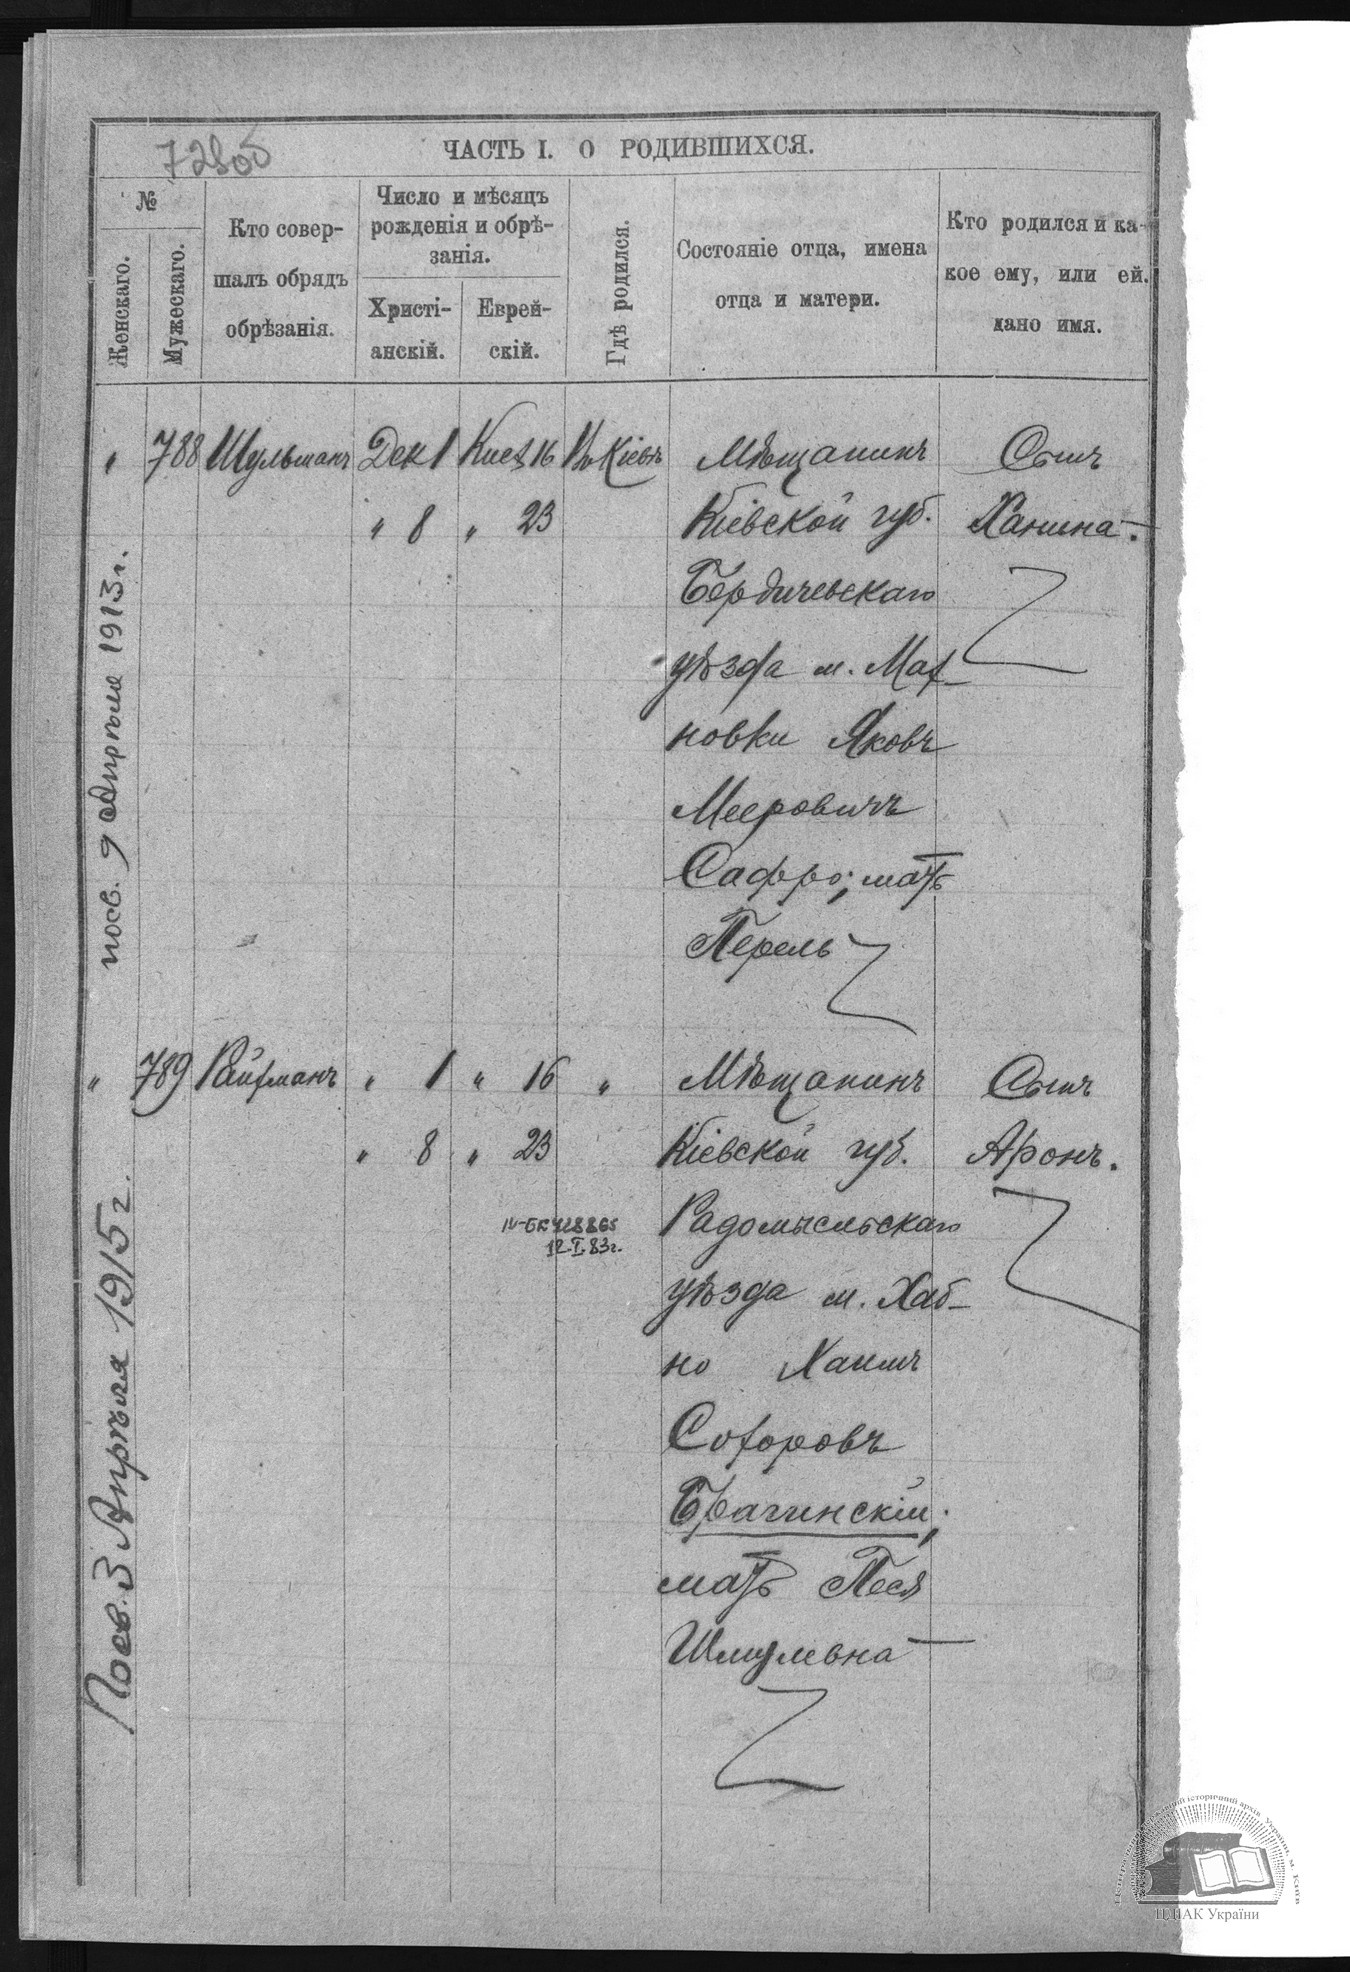 ЧАСТЬ I. О РОДИВШИХСЯ.
№
Женскаго.
Мужескаго.
Кто совер-
шалъ обрядъ
обрѣзанія.
Число и мѣсяцъ
рожденія и обрѣ-
занія.
Христі-
анскій.
Еврей-
скій.
Гдѣ родился.
Состояніе отца, имена
отца и матери.
Кто родился и ка-
кое ему, или ей.
дано имя.
" 788 Шульманъ Дек 1 Кисл 16 Въ Кіевѣ Мѣщанинъ Сынъ
" 8 " 23 Кіевской губ. Ханина.
Бердичевскаго
уѣзда м. Мах-
новки Яковъ
Мееровичъ
Сафро; мать
Перель
посв. 9 Апрѣля 1913 г.
" 789 Райхманъ " 1 " 16 " Мѣщанинъ Сынъ
" 8 " 23 Кіевской губ. Аронъ.
IV-БК 428865
12.I.83г.
Радомысльскаго
уѣзда м. Хаб-
но Хаимъ
Сохоровъ
Брагинскій;
мать Песя
Шмулевна
Посв. 3 Апрѣля 1915 г.
ЦДІАК України